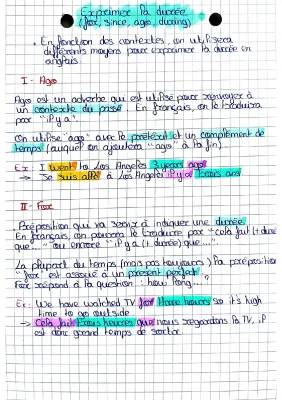 Exprimer la durée
(for, since, ago, during)
• En fonction des contextes, on utilisera
différents moyens pour exprimer la durée en
anglais
I - Ago
Ago est un adverbe qui est utilisé pour renvoyer à
un contexte du passé. En français, on le traduira
par "il y a".
On utilise "ago" avec le prétérit et un complément de
temps (auquel on ajoutera "ago" à la fin)
Ex : I went to Los Angeles 3 years ago
→ Je suis allé à Los Angeles il y a trois ans
II - For
Préposition qui va servir à indiquer une durée.
En français, on pourra le traduire par "cela fait (+ durée)
que..." ou encore "il y a (+ durée) que..."
La plupart du temps (mais pas toujours) la préposition
"for" est associé à un present perfect.
For répond à la question : how long...?
Ex : We have watched TV for three hours so it's high
time to go outside
→ Cela fait trois heures que nous regardons la TV, il
est donc grand temps de sortir.